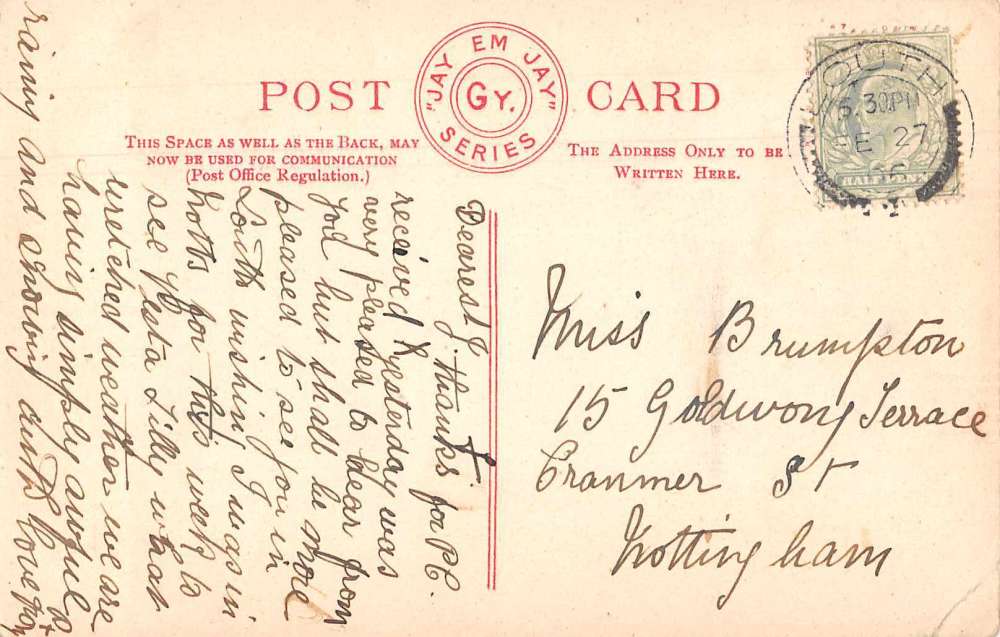 POST CARD
"JAY EM JAY"
GY.
SERIES
THIS SPACE AS WELL AS THE BACK, MAY
NOW BE USED FOR COMMUNICATION
(Post Office Regulation.)
THE ADDRESS ONLY TO BE
WRITTEN HERE.
LOUTH
5.30PM
FE 27
HALFPENNY
Dearest J.
thanks for P.C.
received yesterday was
very pleased to hear from
you but shall be more
pleased to see you in
Louth wishing I was in
Notts for this week to
see Lilly what
wretched weather we are
having simply awful
raining and snowing
love
Miss Brumpton
15 Goldwong Terrace
Cranmer St
Nottingham